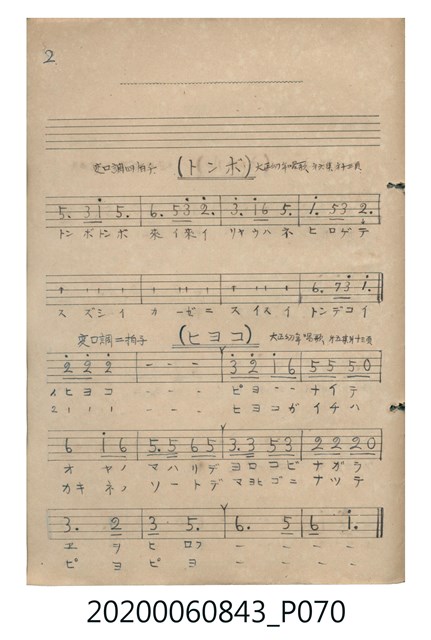 2
(トンボ)
5. 3 i 5. 6. 5 3 2. 3. i 6 5. 1. 5 3 2.
トンボトンボ 來イ來イ リヤウハネ ヒロゲテ
6. 7 3 1.
スズシイ カーゼニ スイスイ トンデコイ
変ロ調二拍子 (ヒヨコ)
2 2 2 - - - 3 2 i 6 5 5 5 0
ヒヨコ - - - ピヨ - - ナイテ
- - - ヒヨコガイチハ
6 i 6 5. 5 6 5 3. 3 5 3 2 2 2 0
オヤノ マハリデ ヨロコビ ナガラ
カキネノ ソートデ マヨヒゴニ ナツテ
3. 2 3 5. 6. 5 6 i.
エヲ ヒロフ - - - -
ピヨ ピヨ - - - -
20200060843_P070